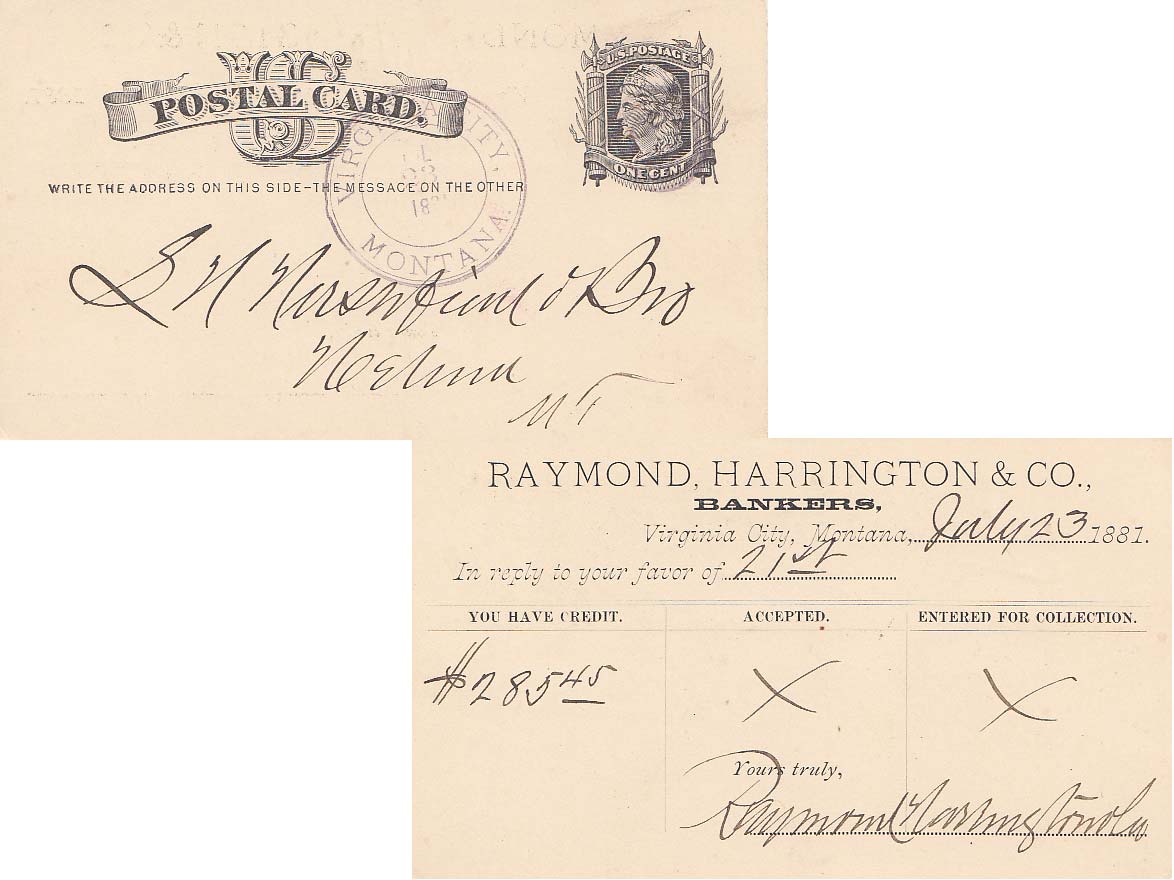 US
POSTAL CARD.
U.S. POSTAGE
ONE CENT
WRITE THE ADDRESS ON THIS SIDE – THE MESSAGE ON THE OTHER
VIRGINIA CITY,
23
MONTANA.
& Bro
Helena
MT
RAYMOND, HARRINGTON & CO.,
BANKERS,
Virginia City, Montana, July 23 1881.
In reply to your favor of 21st
YOU HAVE CREDIT. ACCEPTED. ENTERED FOR COLLECTION.
$285 45 X X
Yours truly,
Raymond Harrington & Co